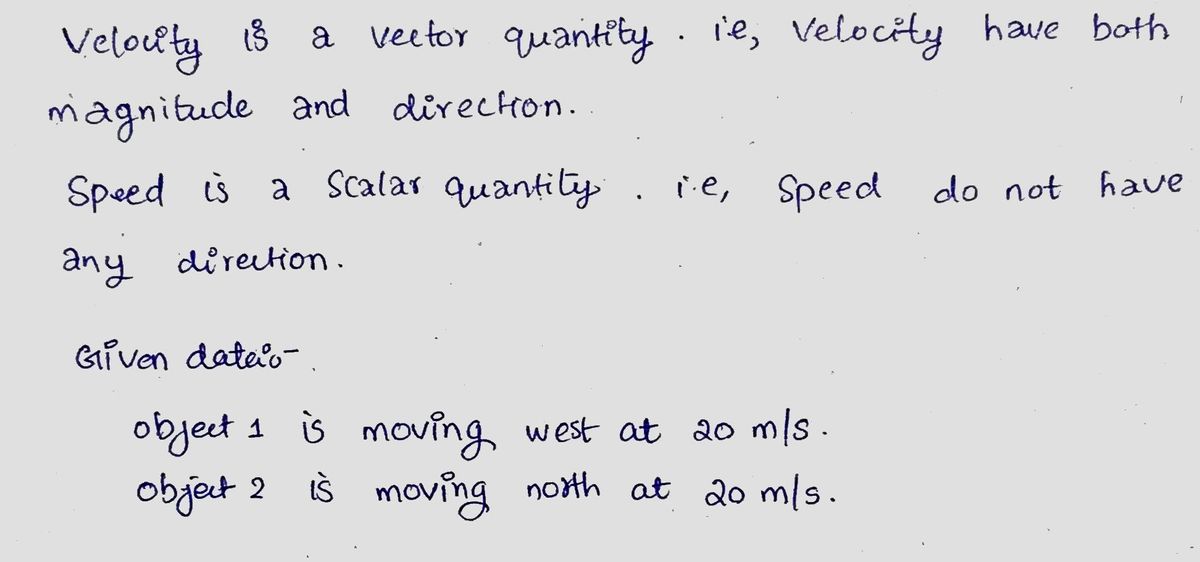 Velocity is a vector quantity. i.e, Velocity have both
magnitude and direction.
Speed is a Scalar quantity. i.e, Speed do not have
any direction.
Given data:-
object 1 is moving west at 20 m/s.
object 2 is moving north at 20 m/s.